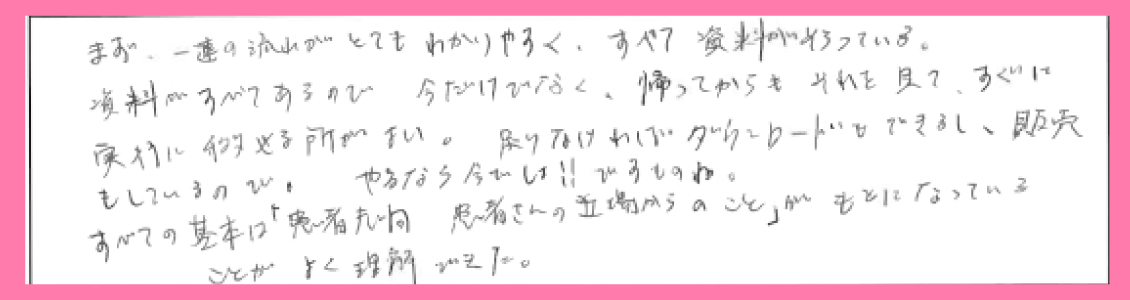 まず、一連の流れがとてもわかりやすく、すべて資料がそろっている。
資料がすべてあるので 今だけでなく、帰ってからも それを見て、すぐに
実行に移せる所がよい。足りなければダウンロードもできるし、販売
もしているので。 やるなら今でしょ!!ですものね。
すべての基本は「患者志向 患者さんの立場からのこと」がもとになっている
ことが よく理解できた。